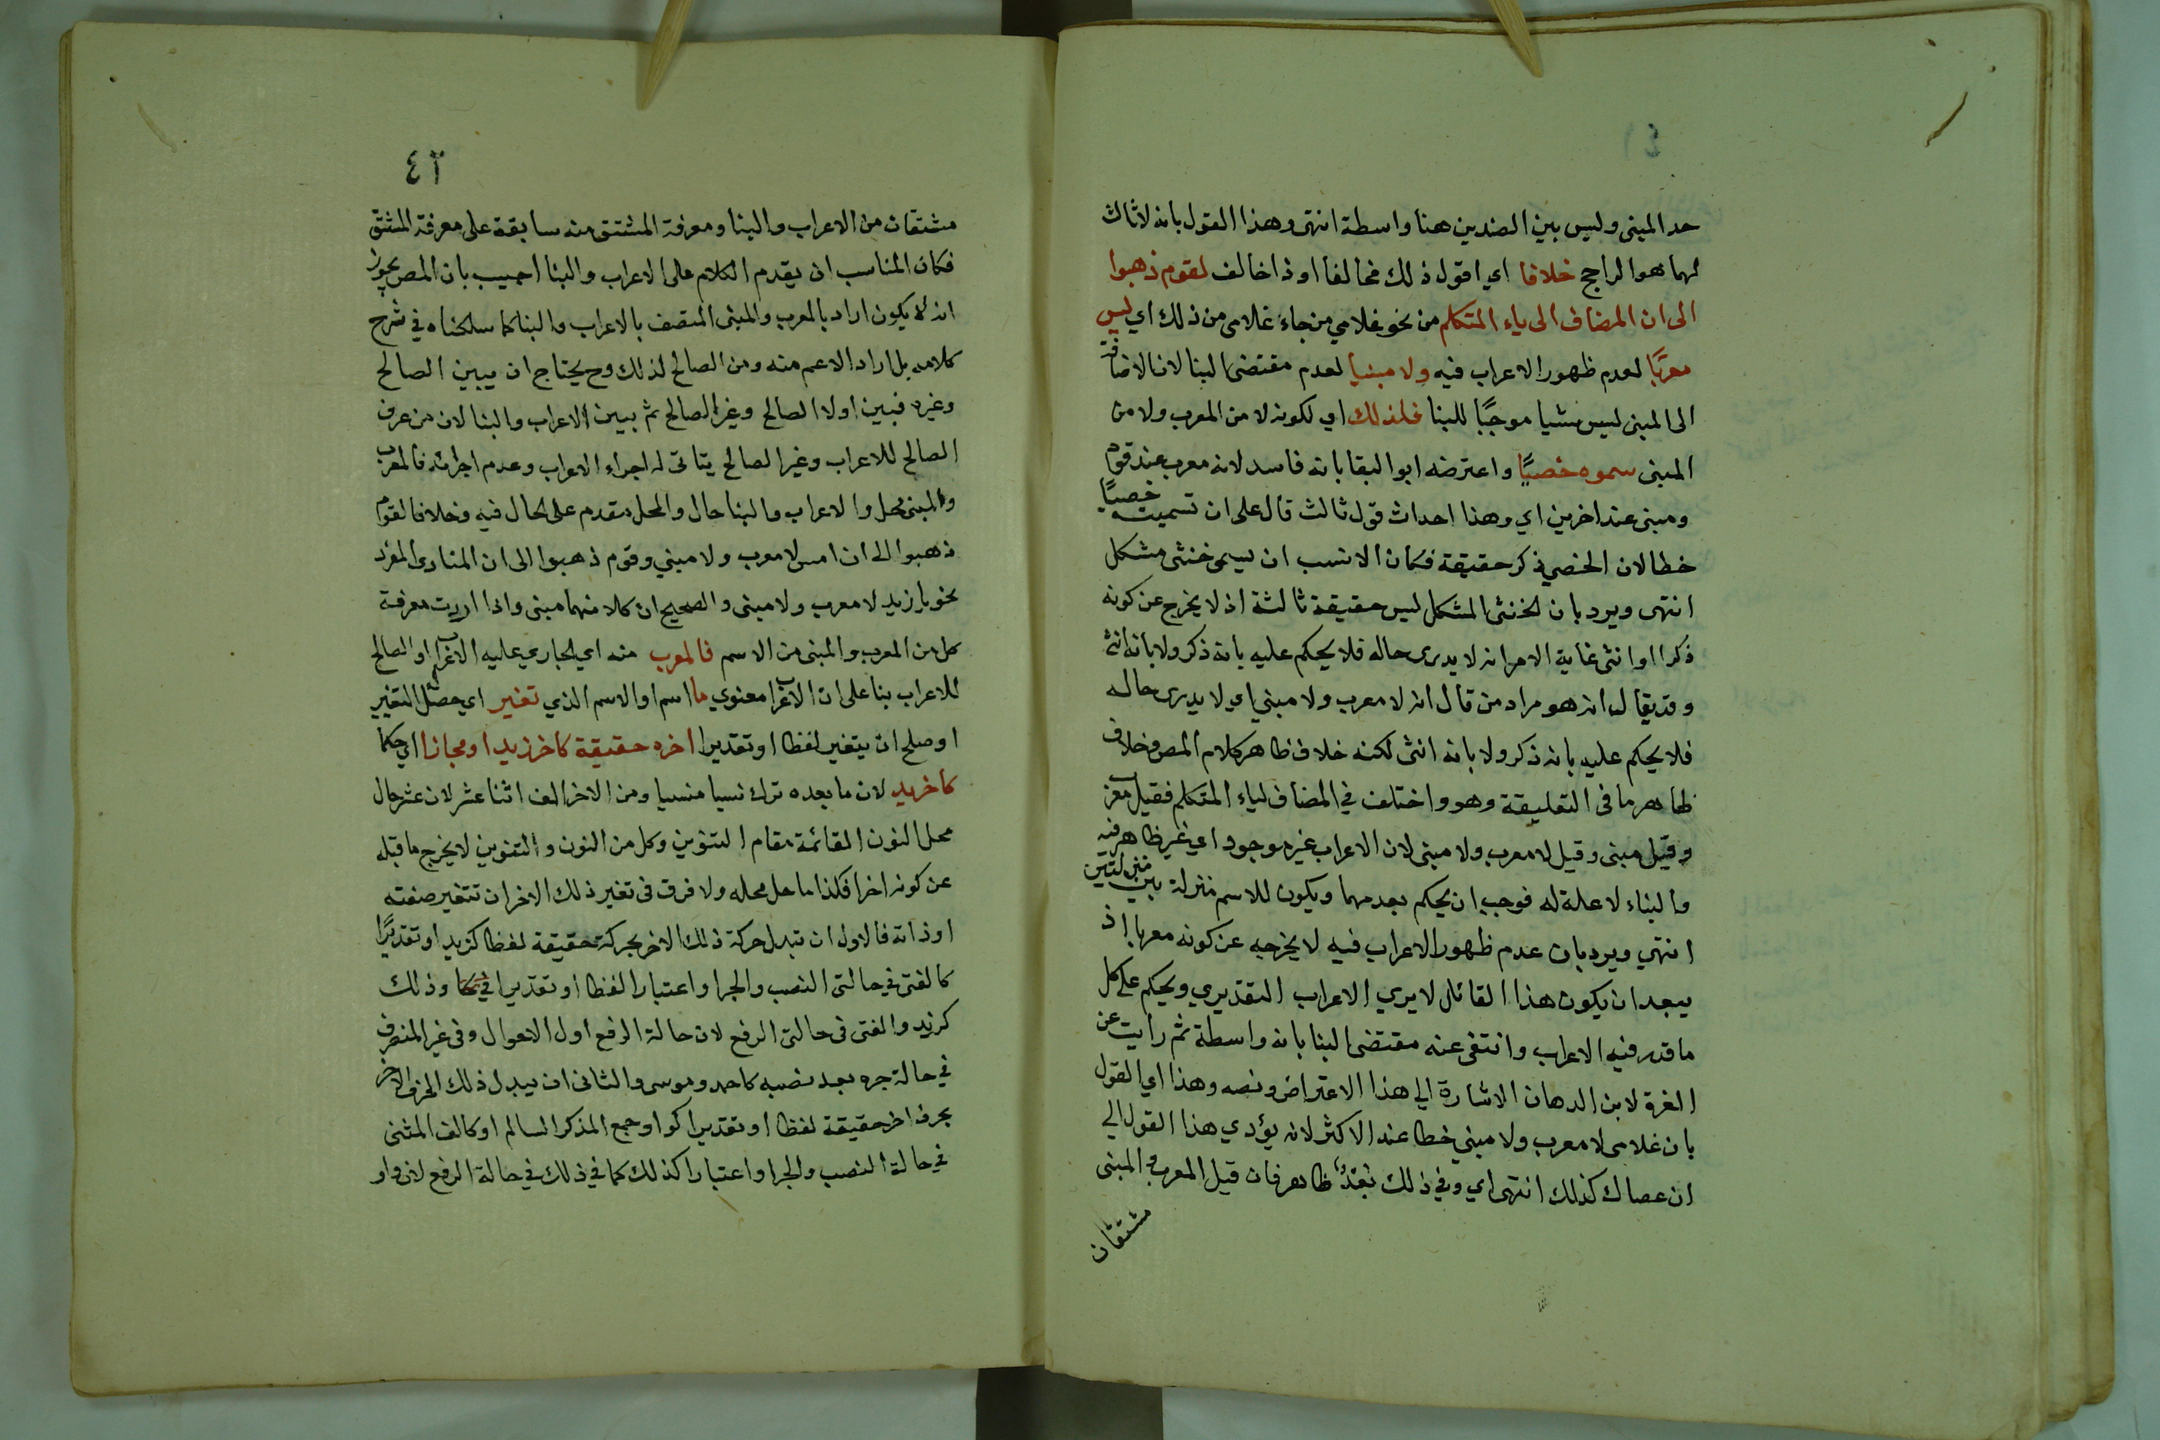 حد المبنى وليس بين الضدين هنا واسطة انتهى وهذا القول بانه لا ثالث
لهما هو الراجح خلافا اي اقول ذلك مخالفا او ذا خالف لقوم ذهبوا
الى ان المضاف الى ياء المتكلم من نحو غلامي من جاء غلامى من ذلك اي ليس
معربًا لعدم ظهور الاعراب فيه ولا مبنيا لعدم مقتضى البنا لان الاضافة
الى المبنى ليس شيا موجبًا للبنا فلذلك اي لكونه لا من المعرب ولا من
المبنى سموه خصيًا واعترضه ابو البقا بانه فاسد لانه معرب عند قوم
ومبنى عند اخرين اي وهذا احداث قول ثالث قال على ان تسميته خصيًا
خطا لان الخصي ذكر حقيقة فكان الانسب ان يسمى خنثى مشكل
انتهى ويرد بان الخنثى المشكل ليس حقيقة ثالثة اذ لا يخرج عن كونه
ذكرا او انثى غاية الامر انه لا يدرى حاله فلا يحكم عليه بانه ذكر ولا بانه انثى
وقد يقال انه هو مراد من قال انه لا معرب ولا مبني اي لا يدرى حاله
فلا يحكم عليه بانه ذكر ولا بانه انثى لكنه خلاف ظاهر كلام المص وخلاف
ظاهر ما فى التعليقة وهو واختلف في المضاف لياء المتكلم فقيل معرب
وقيل مبنى وقيل لا معرب ولا مبنى لان الاعراب غير موجود اي غير ظاهر فيه
والبناء لا علة له فوجب ان يحكم بعدمهما ويكون للاسم منزلة بين منزلتين
انتهي ويرد بان عدم ظهور الاعراب فيه لا يخرجه عن كونه معربا إذ
يبعد ان يكون هذا القائل لا يري الاعراب التقديري ويحكم على كل
ما قدر فيه الاعراب وانتفى عنه مقتضى البنا بانه واسطة ثم رايت عن
الغرة لابن الدهان الاشارة الي هذا الاعتراض ونصه وهذا اي القول
بان غلامى لا معرب ولا مبني خطا عند الاكثر لانه يؤدي هذا القول الي
ان عصاك كذلك انتهى اي وفي ذلك بُعْدٌ ظاهر فان قيل المعرب والمبنى
مشتقان
٤٢
مشتقان من الاعراب والبنا ومعرفة المشتق منه سابقة على معرفة المشتق
فكان المناسب ان يقدم الكلام على الاعراب والبنا اجيب بان المص يجوز
انه لا يكون اراد بالمعرب والمبنى المتصف بالاعراب والبنا كما سلكناه في شرح
كلامه بل اراد الاعم منه ومن الصالح لذلك وح يحتاج ان يبين الصالح
وغيره فبين اولا الصالح وغير الصالح ثم بين الاعراب والبنا لان من عرف
الصالح للاعراب وغير الصالح يتاتى له اجراء الاعراب وعدم اجرائه فالمعرب
والمبنى محل والاعراب والبنا حال والمحل متقدم على الحال فيه وخلافا لقوم
ذهبوا الى ان امس لا معرب ولا مبني وقوم ذهبوا الى ان المنادى المفرد
نحو يا زيد لا معرب ولا مبنى والصحيح ان كلا منهما مبنى واذا اردت معرفة
كل من المعرب والمبنى من الاسم فالمعرب منه اي الجاري عليه الاعراب او الصالح
للاعراب بنا على ان الاعراب معنوي ما اسم او الاسم الذي تغير اي حصل التغيير
او صلح ان يتغير لفظا او تقديرا اخره حقيقة كاخر زيد او مجازا اي حكما
كاخر يد لان ما بعده ترك نسيا منسيا ومن الاخر الف اثنا عشر لان عشر حال
محل النون القائمة مقام التنوين وكل من النون والتنوين لا يخرج ما قبله
عن كونه اخرا فكذا ما حل محله ولا فرق فى تغير ذلك الاخر ان تتغير صفته
او ذاته فالاول ان تبدل حركة ذلك الاخر بحركة حقيقة لفظا كزيد او تقديرًا
كالفتى في حالتى النصب والجر او اعتبارا لفظا او تقديرا وذلك
كزيد والفتى فى حالتى الرفع لان حالة الرفع اول الاحوال وفى غير المنصرف
في حالة جره بعد نصبه كاحمد وموسى والثانى ان يبدل ذلك الحرف الاخر
بحرف اخر حقيقة لفظا او تقديرا كواو جمع المذكر السالم او كالف المثنى
في حالة النصب والجر او اعتبارا كذلك كما في ذلك في حالة الرفع لان واو